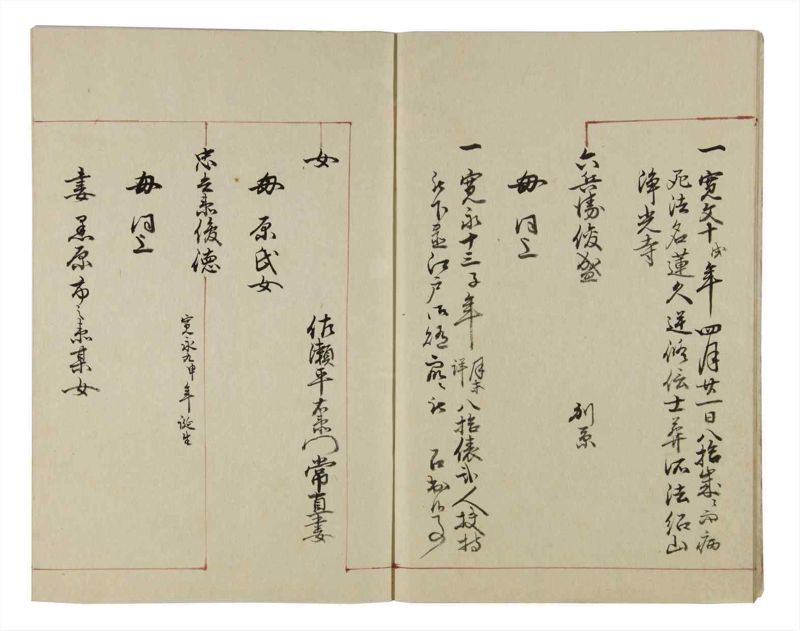 一 寛文十戌年四月廿一日八拾歳ニ而病
死法名蓮久逆修信士葬所法紹山
浄光寺
六兵衛俊盛 別系
母同上
一 寛永十三子年月未詳八拾俵弐人扶持
被下置江戸
女 佐瀬平右衛門常直妻
母原氏女
忠兵衛俊徳 寛永九申年誕生
母同上
妻黒原市之某女